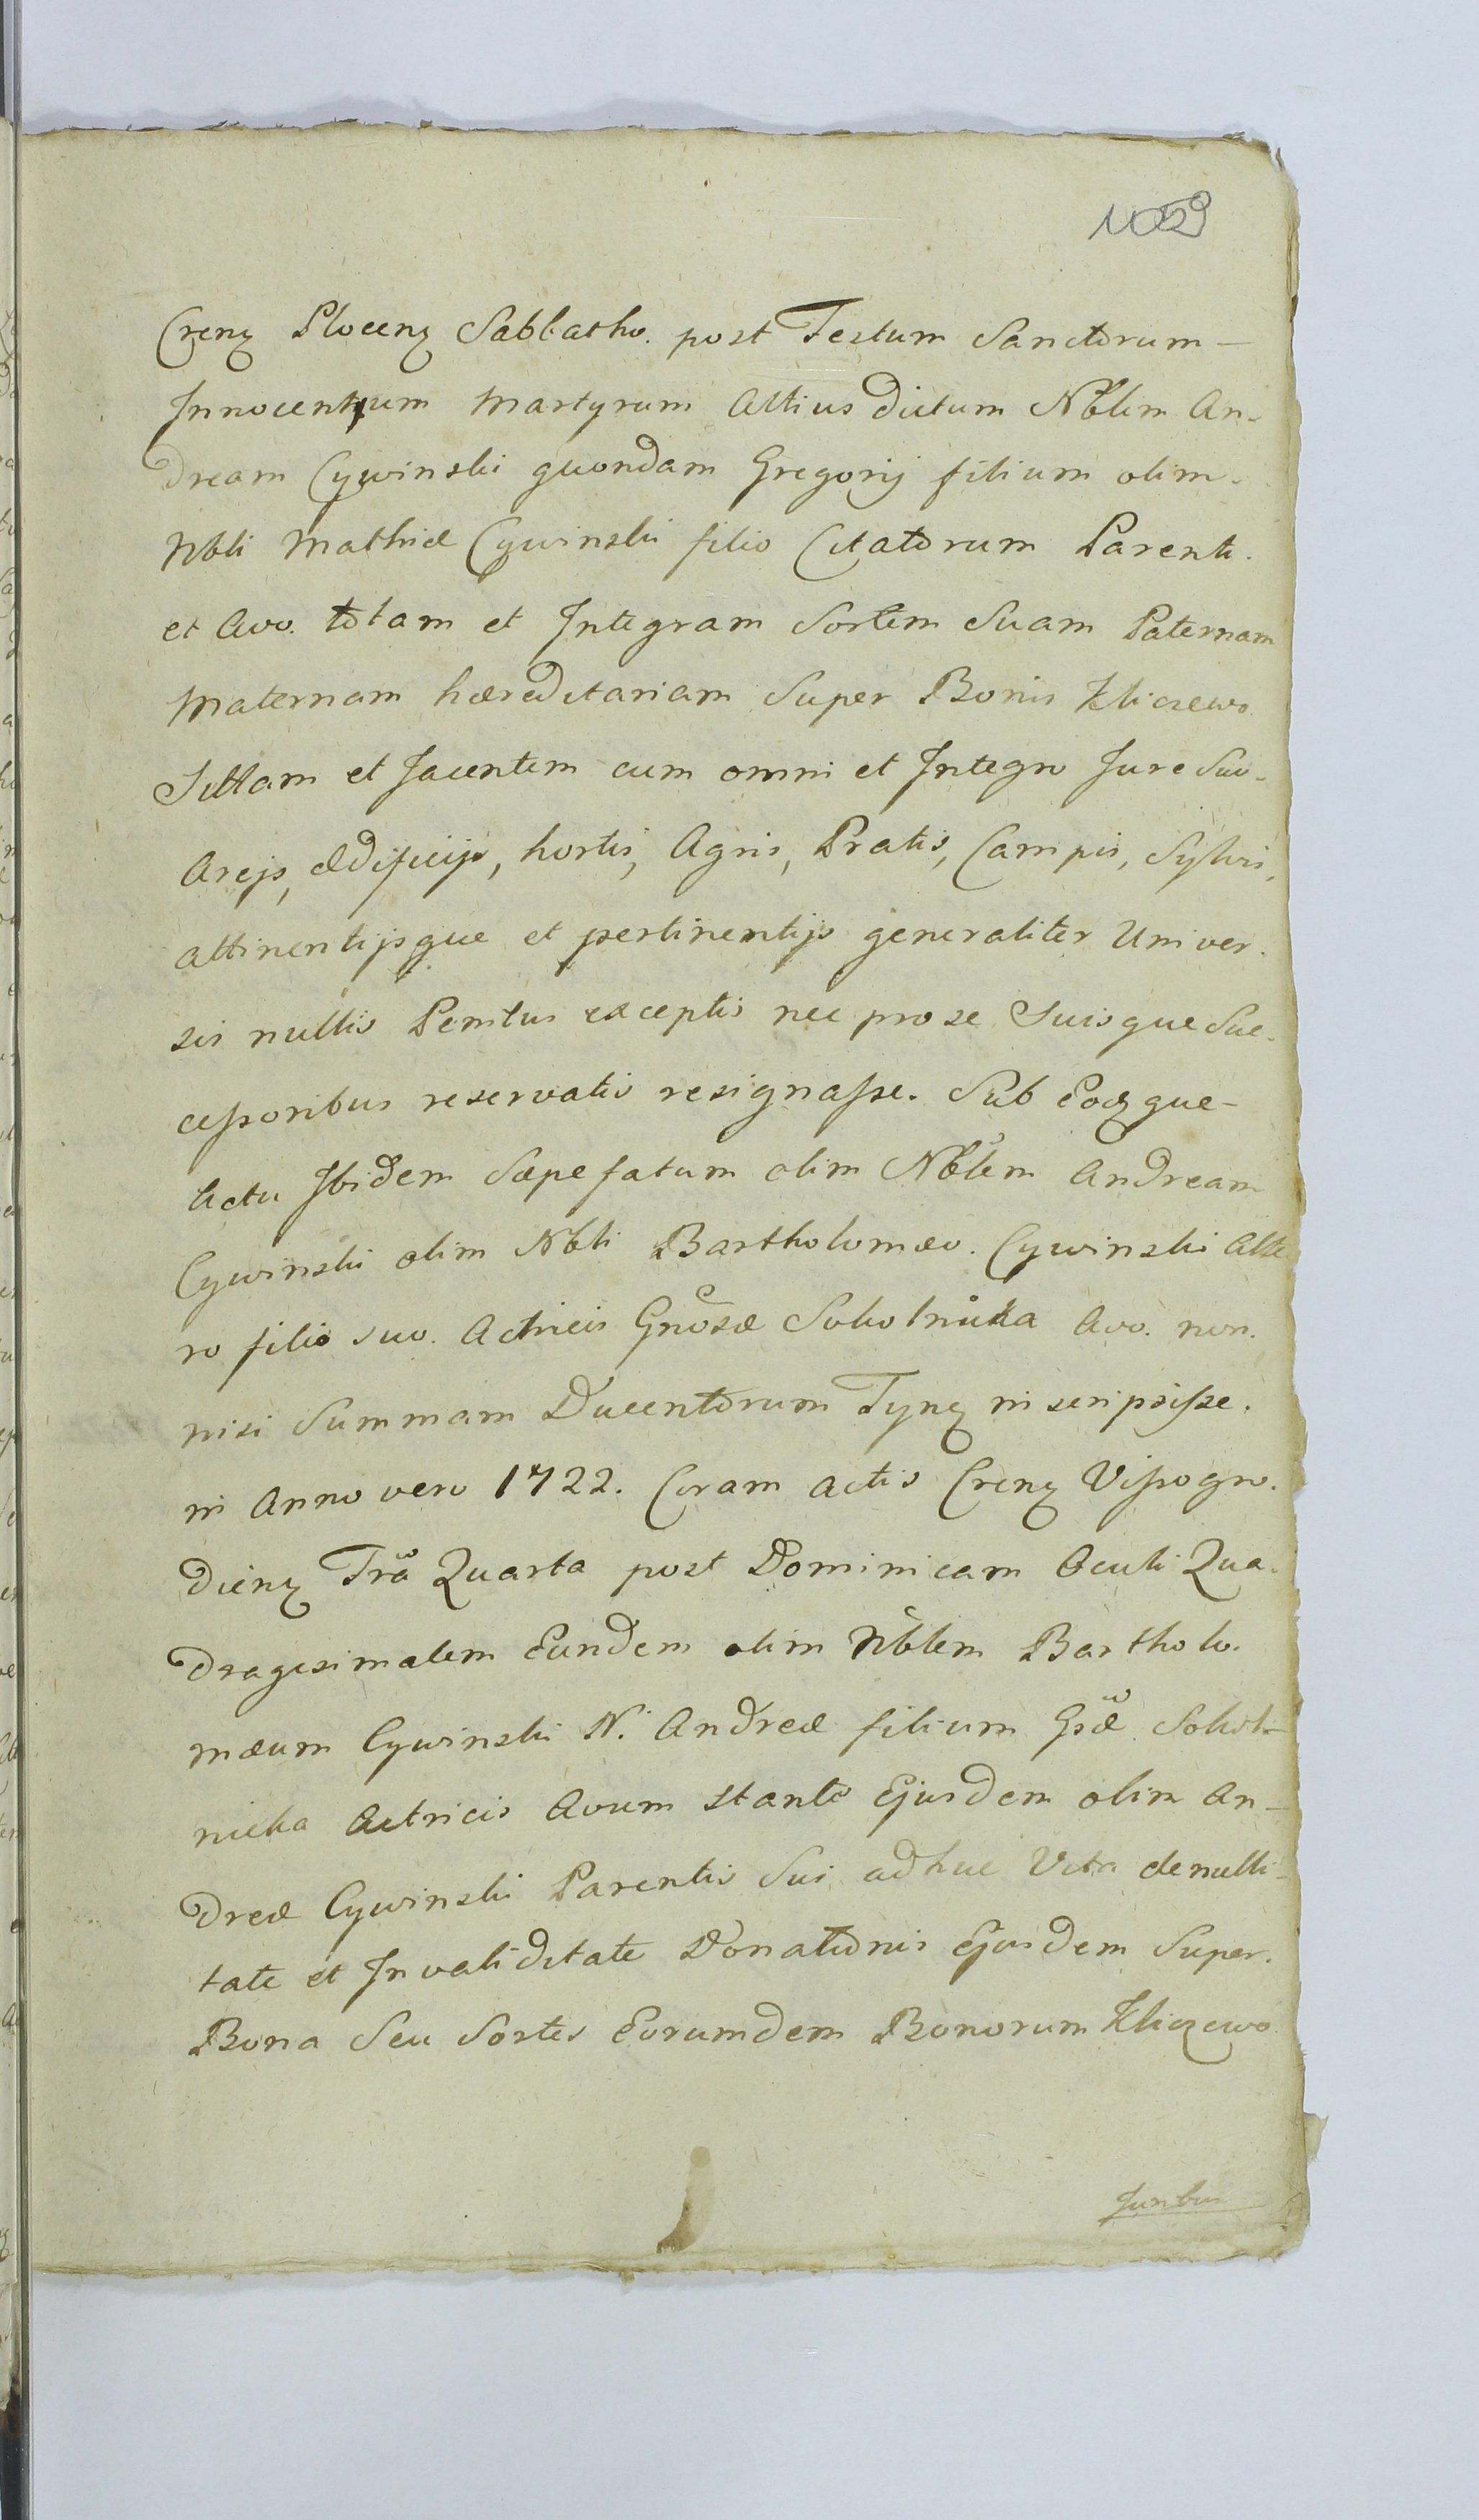 1029
Creng Ploceng Sabbatho. post Festum Sanctorum—
Innocentium Martyrum Altius dictum Nblem An-
dream Cywinski quondam Gregorij filium olim.
Nbli Mathiæ Cywinski filio Citatorum Parenti.
et Avo. totam et Integram Sortem Suam Paternam
Maternam hæreditariam Super Bonis Kliczewo
Sittam et Jacentem cum omni et Integro Jure Suo.
Areis, ædificijs, hortis, Agris, Pratis, Campis, Sylvis,
attinentijsque et pertinentijs generaliter Univer.
sis nullis Penitus exceptis nec pro se Suisque Suc-
cessoribus reservatis resignasse. Sub Eodgque-
Actu Ibidem Sæpefatum olim Nblem Andream
Cywinski olim Nbli Bartholomæo. Cywinski Alte
ro filio suo. Actricis Gnosæ Sokolnicka Avo. non.
nisi Summam Ducentorum Tyng inscripsisse.
in Anno vero 1722. Coram actis Creng Vissogro.
dieng Fra Quarta post Dominicam Oculi Qua.
dragesimalem Eundem olim Nblem Bartholo.
mæum Cywinski N. Andreæ filium Gsæ Sokol-
nicka Actricis Avum stante Ejusdem olim An-
dreæ Cywinski Parentis Sui adhuc Vita de nulli-
tate et Invaliditate Donationis Ejusdem Super.
Bona Seu Sortes Eorumdem Bonorum Kliczewo
Juribus